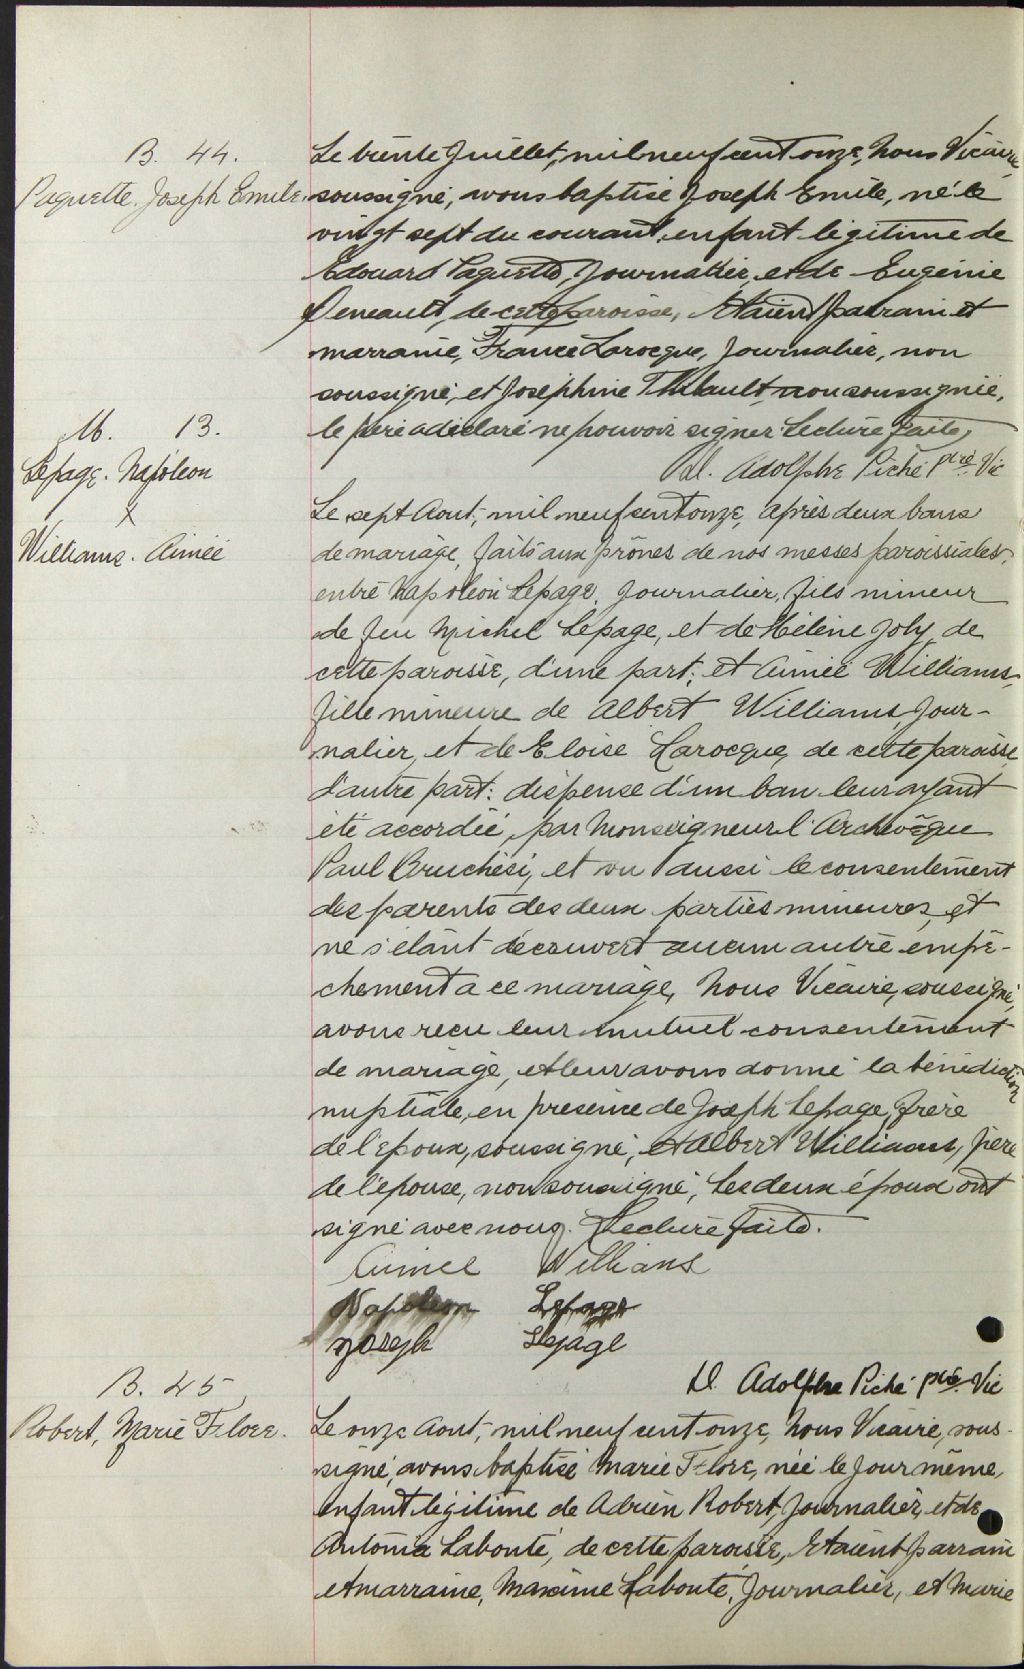 B. 44.
Paquette. Joseph Emile.
Le trente Juillet, mil neuf cent onze, Nous Vicaire
soussigné, avons baptisé Joseph Emile, né le
vingt sept du courant, enfant légitime de
Edouard Paquette, Journalier, et de Eugénie
Deneault, de cette paroisse, Etaient parrain et
marraine, France Larocque, Journalier, non
soussigné, et Joséphine Thibault, non soussignée,
le père a déclaré ne pouvoir signer. Lecture faite,
D. Adolphe Piché ptre. Vic
M. 13.
Lepage. Napoléon
X
Williams. Aimée
Le sept Aout, mil neuf cent onze, après deux bans
de mariage, faits aux prônes de nos messes paroissiales,
entre Napoléon Lepage, Journalier, fils mineur
de feu Michel Lepage, et de Hélène Joly, de
cette paroisse, d'une part; et Aimée Williams,
fille mineure de Albert Williams, Jour-
nalier, et de Eloise Larocque, de cette paroisse
d'autre part: dispense d'un ban leur ayant
été accordée, par Monseigneur l'Archevêque
Paul Bruchési, et vu aussi le consentement
des parents des deux parties mineures, et
ne s'étant découvert aucun autre empê-
chement a ce mariage, Nous Vicaire, soussigné,
avons recu leur mutuel consentement
de mariage, et leur avons donné la bénédiction
nuptiale, en présence de Joseph Lepage, frère
de l'époux, soussigné, et Albert Williams, père
de l'épouse, non soussigné, Les deux époux ont
signé avec nous. Lecture faite.
Aimee Willians
Napoleon Lepage
Joseph Lepage
D. Adolphe Piché ptre. Vic
B. 45
Robert, Marie Flore.
Le onze Aout, mil neuf cent onze, Nous Vicaire, sous-
signé, avons baptisé Marie Flore, née le jour même,
enfant légitime de Adrien Robert, Journalier, et de
Antonia Labonté, de cette paroisse, Etaient parrain
et marraine, Maxime Labonté, Journalier, et Marie